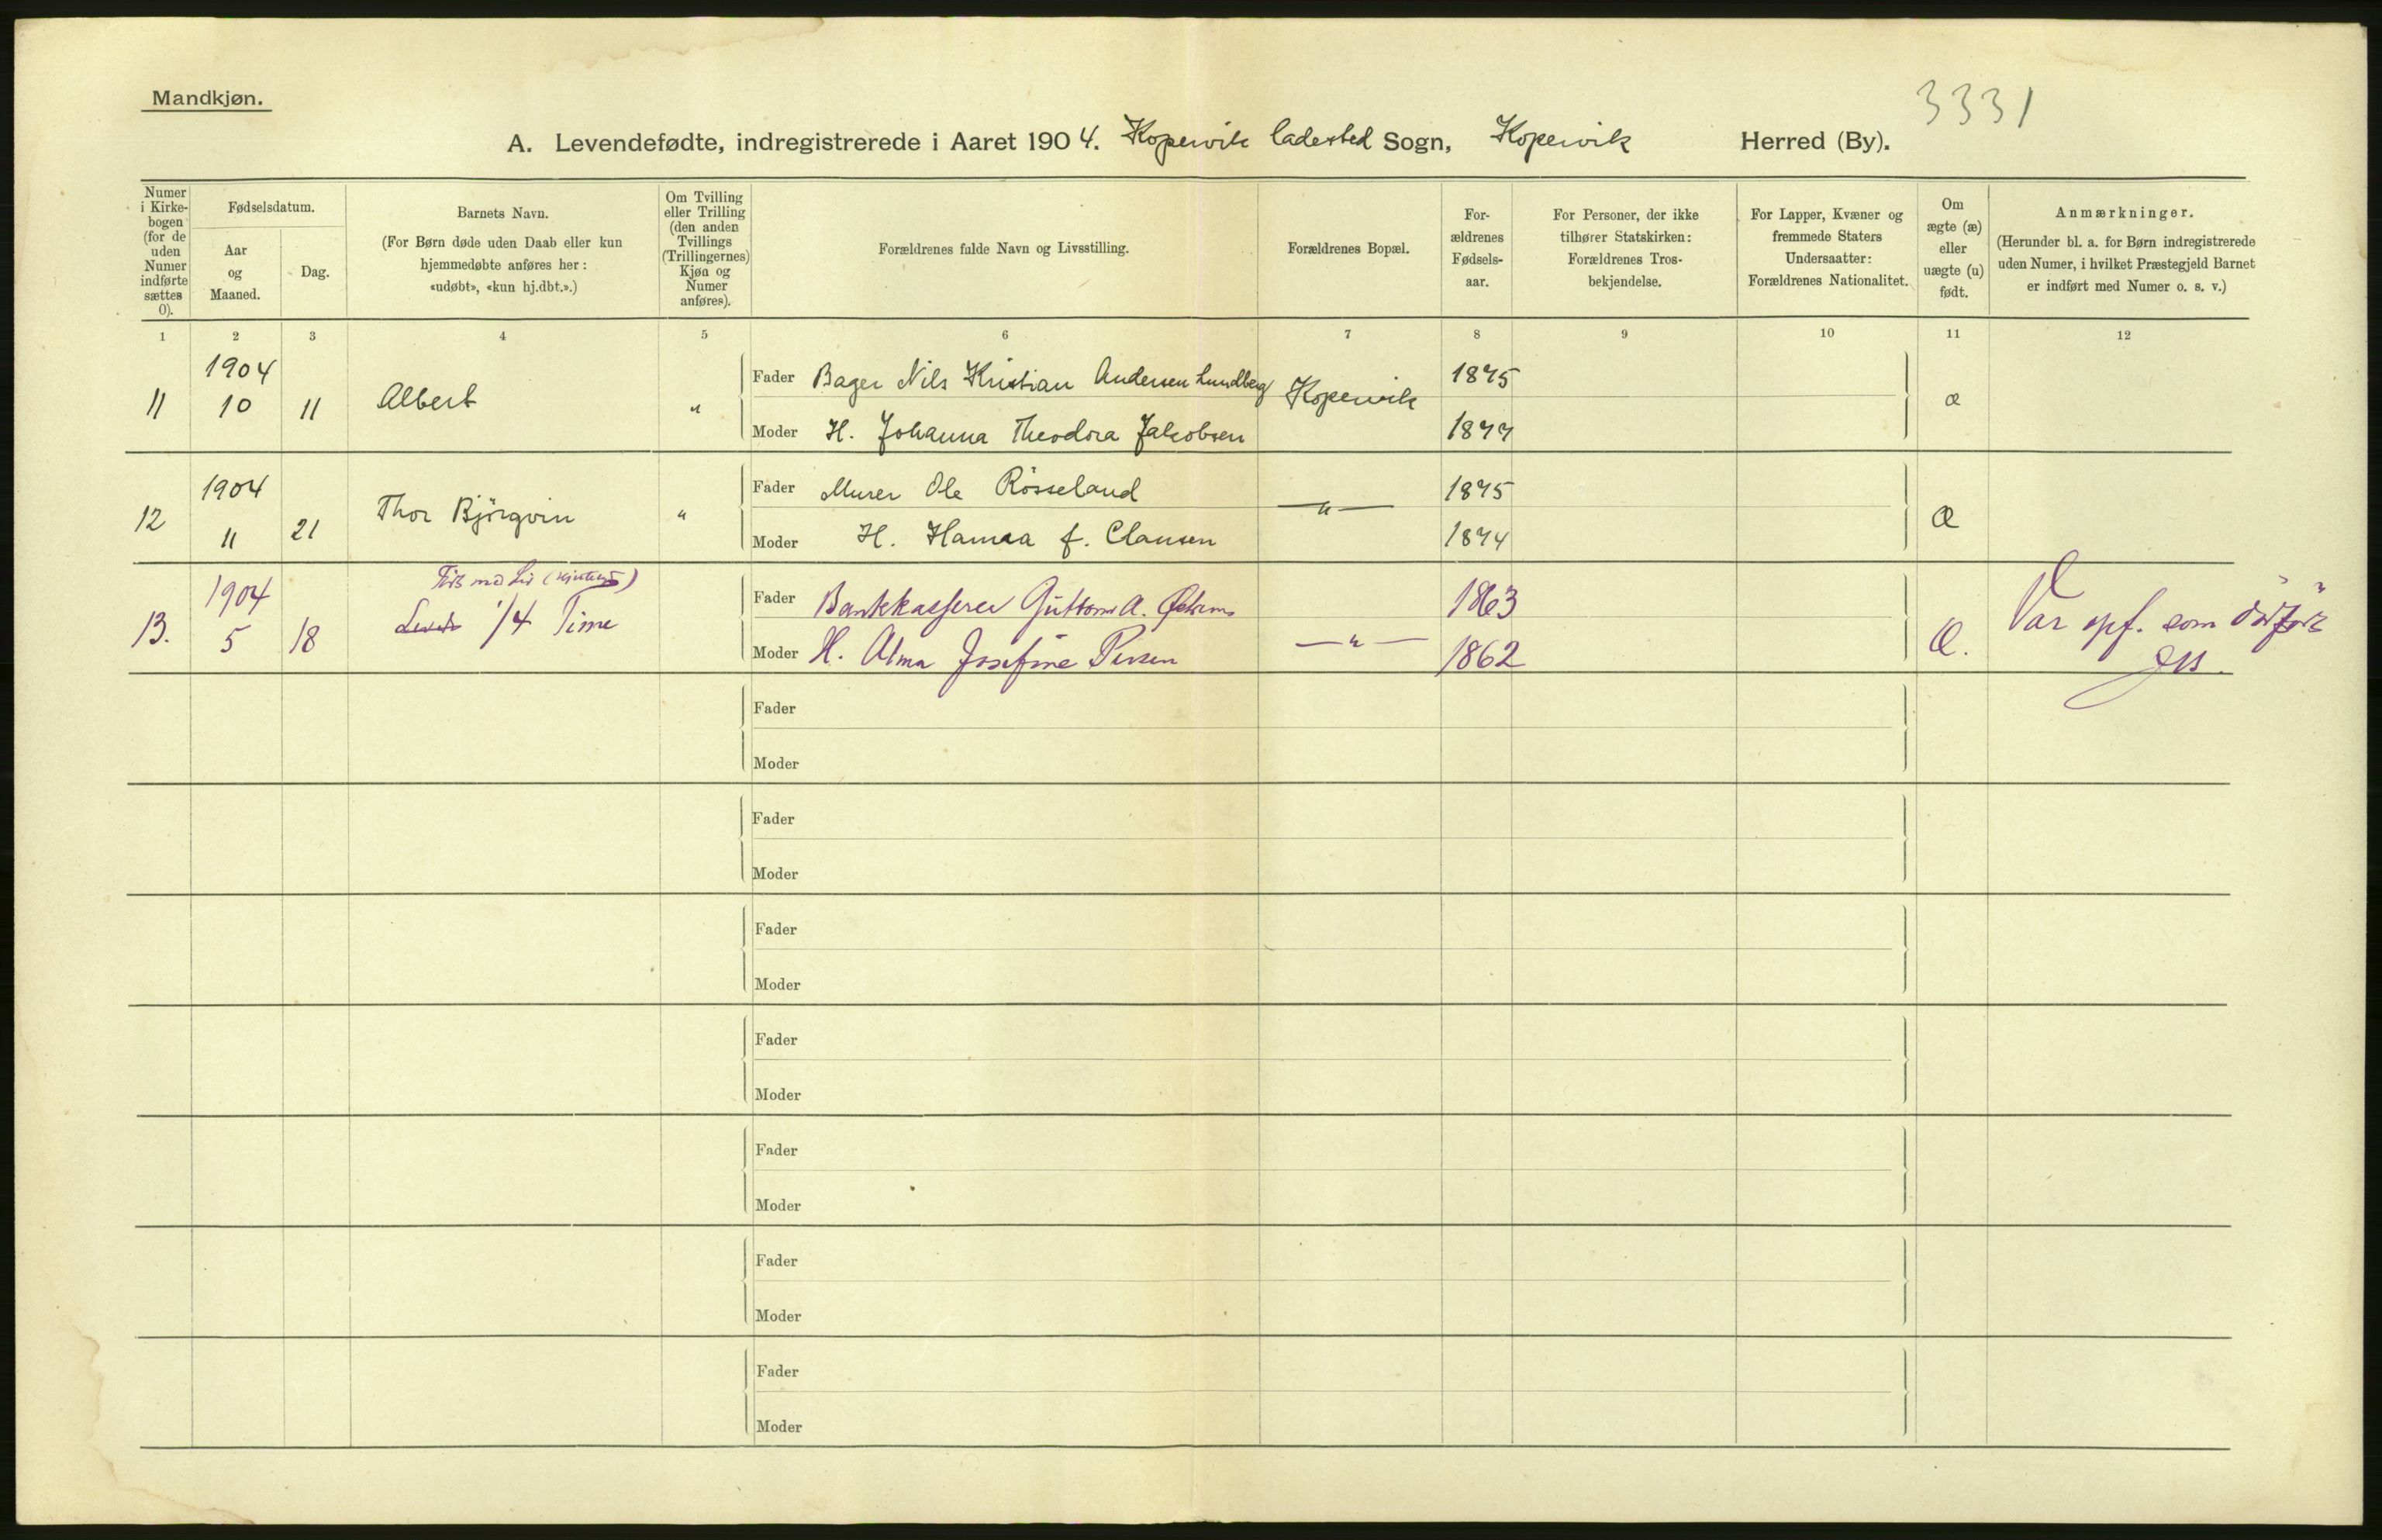 Mandkjøn.
3331
A. Levendefødte, indregistrerede i Aaret 1904. Kopervik ladested Sogn, Kopervik Herred (By).
Numer i Kirke-bogen (for de uden Numer indførte sættes 0).
Fødselsdatum.
Aar og Maaned.
Dag.
Barnets Navn.
(For Børn døde uden Daab eller kun hjemmedøbte anføres her: «udøbt», «kun hj.dbt.».)
Om Tvilling eller Trilling (den anden Tvillings (Trillingernes) Kjøn og Numer anføres).
Forældrenes fulde Navn og Livsstilling.
Forældrenes Bopæl.
For-ældrenes Fødsels-aar.
For Personer, der ikke tilhører Statskirken: Forældrenes Tros-bekjendelse.
For Lapper, Kvæner og fremmede Staters Undersaatter: Forældrenes Nationalitet.
Om ægte (æ) eller uægte (u) født.
Anmærkninger.
(Herunder bl. a. for Børn indregistrerede uden Numer, i hvilket Præstegjeld Barnet er indført med Numer o. s. v.)
1 2 3 4 5 6 7 8 9 10 11 12
1904
Fader Bager Nils Kristian Andersen Lundberg Kopervik 1875
11 10 11 Albert " æ
Moder H. Johanna Theodora Jakobsen 1877
1904
Fader Murer Ole Rösseland —"— 1875
12 11 21 Thor Björgvin " Æ
Moder H. Hanna f. Clausen 1874
1904
Född med Liv
Fader Bankkasserer Guttorm A. 1863
13. 5 18 Levede 1/4 Time —"— Æ. Var opf. som "dødfødt"
Moder H. Alma Josefine Persen 1862
Fader
Moder
Fader
Moder
Fader
Moder
Fader
Moder
Fader
Moder
Fader
Moder
Fader
Moder